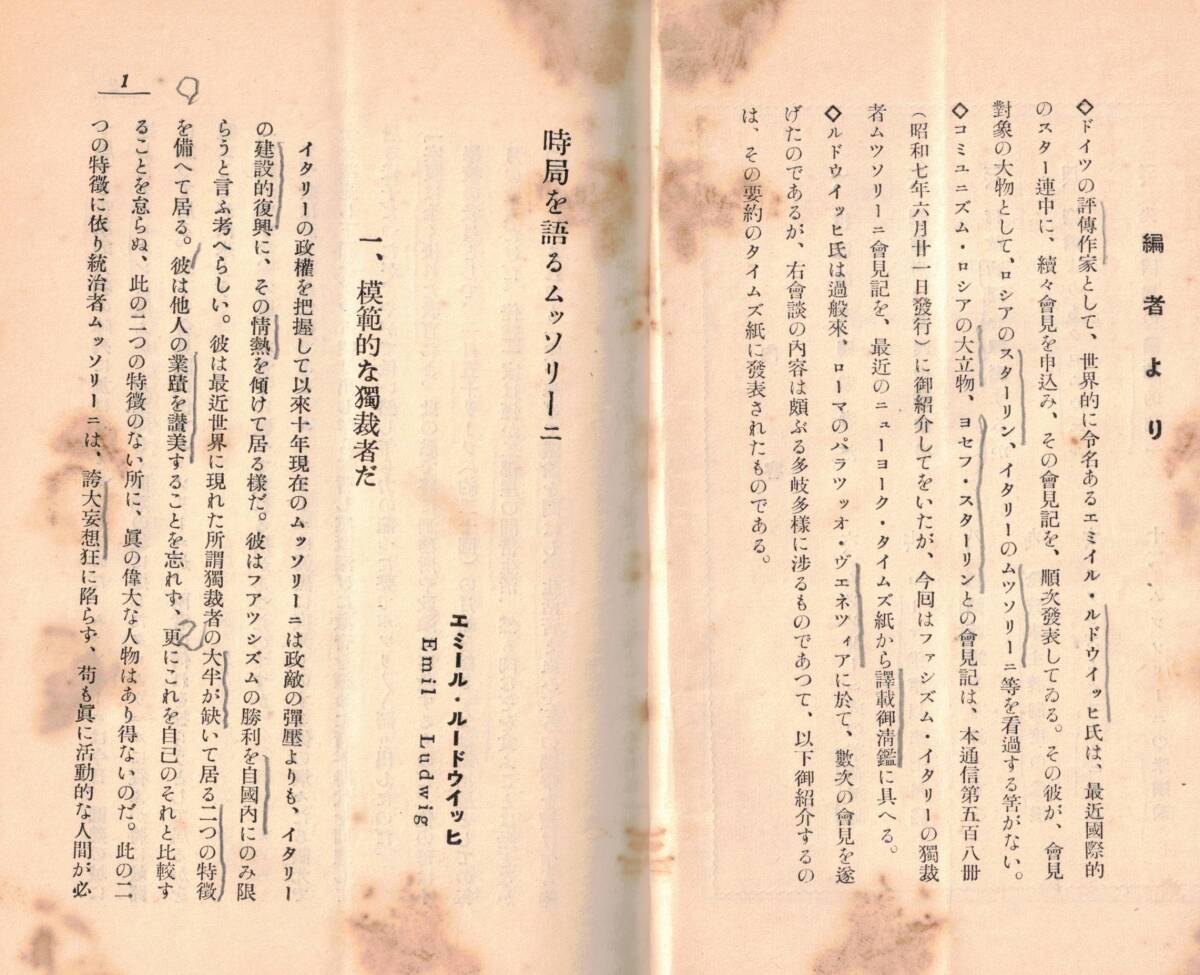 編者より
◇ドイツの評傳作家として、世界的に令名あるエミイル・ルドウイッヒ氏は、最近國際的
のスター連中に、續々會見を申込み、その會見記を、順次發表してゐる。その彼が、會見
對象の大物として、ロシアのスターリン、イタリーのムツソリーニ等を看過する筈がない。
◇コミユニズム・ロシアの大立物、ヨセフ・スターリンとの會見記は、本通信第五百八冊
(昭和七年六月廿一日發行)に御紹介してをいたが、今回はファシズム・イタリーの獨裁
者ムツソリーニ會見記を、最近のニューヨーク・タイムズ紙から譯載御淸鑑に具へる。
◇ルドウイッヒ氏は過般來、ローマのパラツッオ・ヴェネツィアに於て、數次の會見を遂
げたのであるが、右會談の內容は頗ぶる多岐多樣に涉るものであつて、以下御紹介するの
は、その要約のタイムズ紙に發表されたものである。
時局を語るムッソリーニ
エミール・ルードウイッヒ
Emil Ludwig
一、模範的な獨裁者だ
イタリーの政權を把握して以來十年現在のムッソリーニは政敵の彈壓よりも、イタリー
の建設的復興に、その情熱を傾けて居る樣だ。彼はフアツシズムの勝利を自國內にのみ限
らうと言ふ考へらしい。彼は最近世界に現れた所謂獨裁者の大半が缺いて居る二つの特徵
を備へて居る。彼は他人の業蹟を讃美することを忘れず、更にこれを自己のそれと比較す
ることを怠らぬ、此の二つの特徵のない所に、眞の偉大な人物はあり得ないのだ。此の二
つの特徵に依り統治者ムッソリーニは、誇大妄想狂に陷らず、苟も眞に活動的な人間が必
1
2